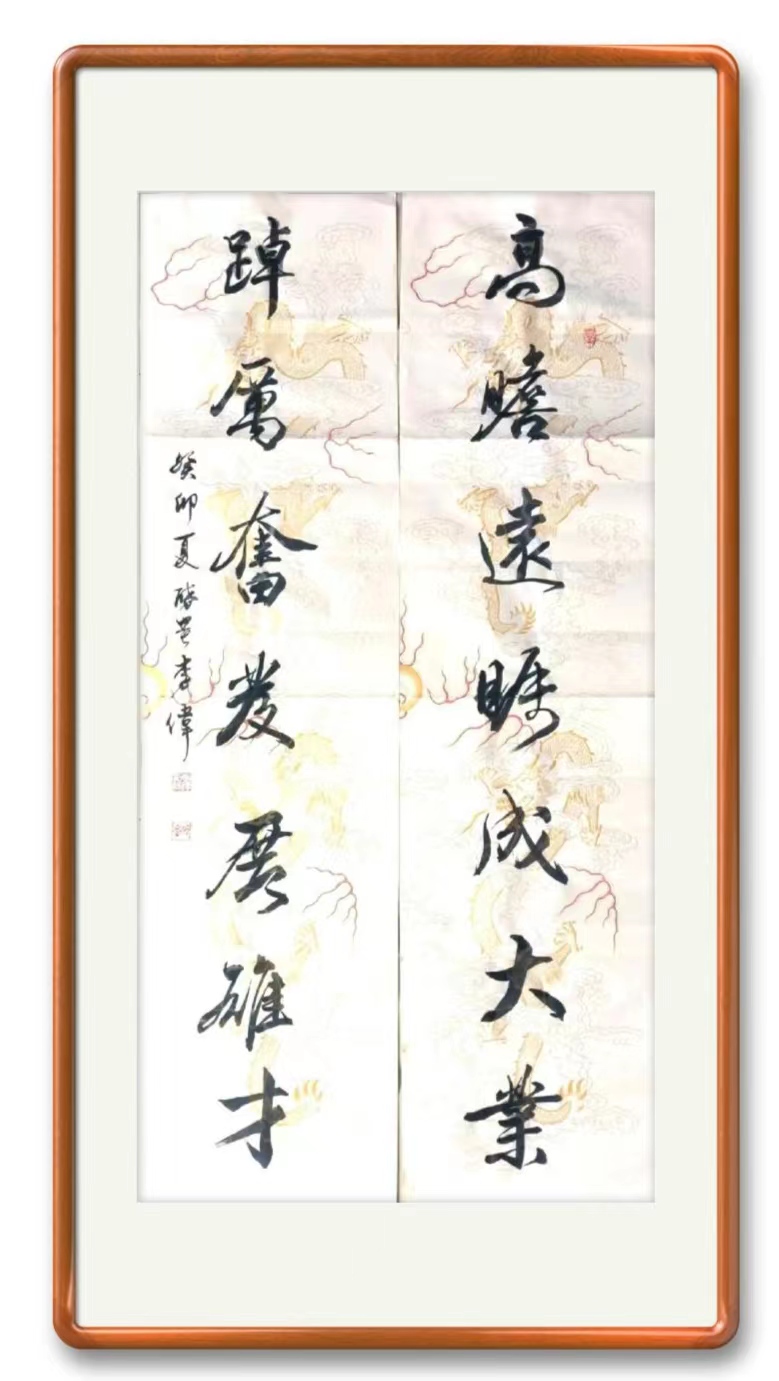 高瞻遠瞩成大業
踔厲奮發展雄才
癸卯夏 李偉